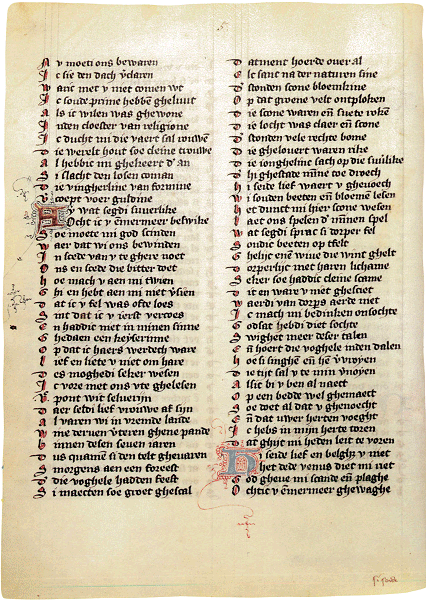 N v moeti ons bewaren
I c sie den dach v'claren
W aric met v niet comen wt
I c soude prime hebbē gheluut
A ls ic wilen was ghewone
I nden cloester van religione
I c ducht mi die vaert sal rouwē
D ie werelt hout soe cleine trouwe
A l hebbic mi ghekeert d'an
S i slacht den losen coman
D ie vingherline van formine
V'coept voer guldine
A y wat segdi suuerlike
O cht ic v ēmermeer beswike
S oe moete mi god scinden
W aer dat wi ons bewinden
I n scede van v te ghere noet
O ns en scede die bitter doet
H oe mach v aen mi twien
G hi en hebt aen mi niet v'siē
D at ic v fel was ofte loes
S int dat ic v ierst vercoes
I n haddic niet in minen sinne
G hedaen een keyserinne
O p dat ic haers werdech ware
L ief en liete v niet om hare
D es moghedi seker wesen
I c vore met ons vte ghelesen
pont wit seluerijn
D aer seldi lief vrouwe af sijn
A l varen wi in vremde lande
W ine derven vteren ghene pande
B innen desen seuen iaren
D us quamē si den telt gheuaren
S morgens aen een foreest
D aer die voghele hadden feest
S i maecten soe groet ghescal
D atment hoerde ouer al
E lc sanc na der naturen sine
D stonden scone bloemkine
O p dat groene velt ontploken
D ie scone waren eñ suete rokē
D ie locht was claer eñ scone
D stonden vele rechte bome
D ie ghelouert waren rike
D ie iongheline sach op die suulike
D hi ghestade mīne toe droech
H i seide lief waert v gheuoech
W i souden beeten eñ bloemē lesen
H et dunct mi hier scone wesen
L aet ons spelen d' mīnen spel
W at segdi sprac si dorper fel
S oudic beeten op tfelt
G helijc enē wiue die wint ghelt
D orperlijc met haren lichame
S eker soe haddic cleine scame
D it en ware v niet ghesciet
W aerdi van dorpers aerde niet
I c mach mi bedinken onsochte
G odsat hebdi diet sochte
S wighet meer deser talen
E ñ hoert die voghele inden dalen
H oe si singhē eñ hē v'vroyen
D ie tijt sal v te min v'noyen
A lsic bi v ben al naect
O p een bedde wel ghemaect
S oe doet al dat v ghenoecht
E ñ dat uwer herten voeght
I c hebs in mijn herte toren
D at ghijt mi heden leit te voren
H i seide lief en belghet v niet
H et dede venus diet mi riet
G od gheue mi scande eñ plaghe
O chtic v ēmermeer ghewaghe